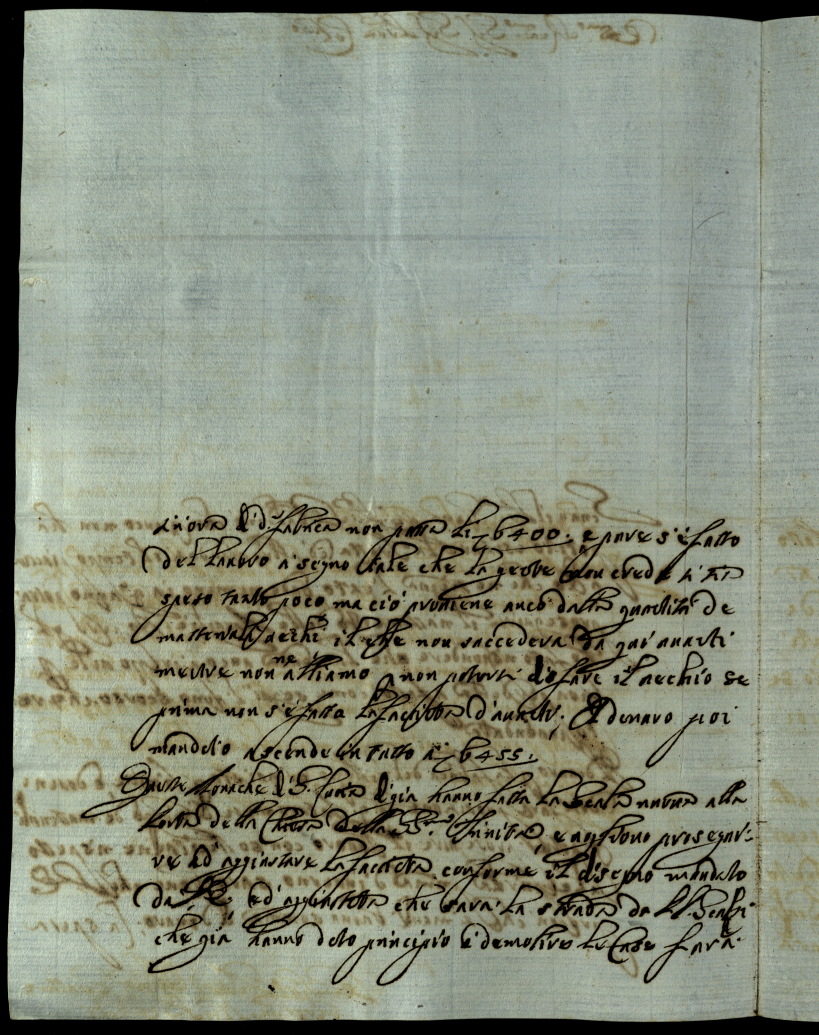 d: fabrica non passa li 6400: e pure s'è fatto
del lavoro a segno tale che la gente non crede si
speso tanto poco ma ciò proviene anco dalla quantità de
materiali vechi il che non saccederà da quà avanti
mentre non ne abbiamo non potersi disfare il vechio se
prima non s'è fatta la facciata d'avanti: Il denaro poi
mandato ascende in tutto à 6455:
Queste Monache di S. Lucia già hanno fatta la Scala nuova alla
Porta della Chiesa della SS. Trinità, e vogliono prosegui-
re ad aggiustare la facciata conforme il disegno mandato
da ed aggiustata che sarà la strada da
che già hanno dato principio à demolire le Case sarà